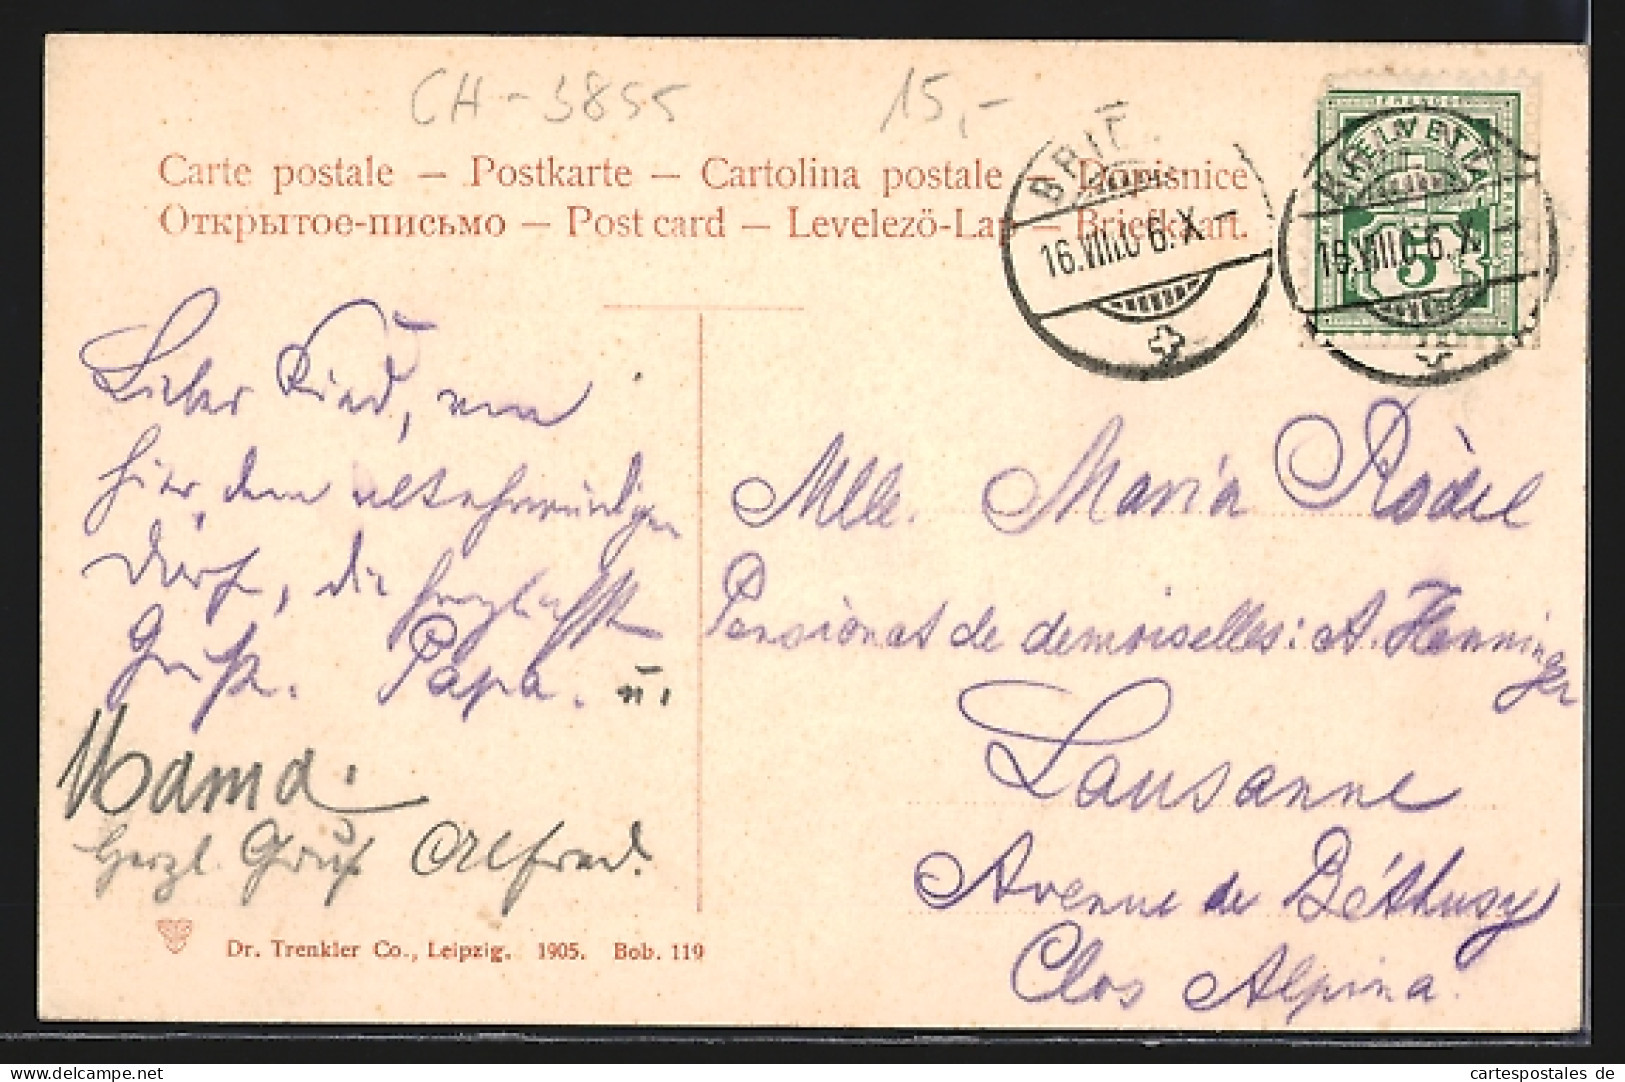 CH-3855
15,-
Carte postale — Postkarte — Cartolina postale — Dopisnice
Открытое-письмо — Post card — Levelező-Lap — Briefkaart.
BRIE
16.VIII.06.X
HELVETIA
FRANCO
5
16.VIII.06.X
Liebes Kind, von
hier, dem altehrwürdigen
Dorf, die herzlichsten
Grüße. Papa. u.
Mama.
Herzl. Gruß Alfred.
Mlle. Maria Rödel
Pensionat de demoiselles: A. Henninger
Lausanne
Avenue de Béthusy
Clos Alpina.
Dr. Trenkler Co., Leipzig. 1905. Bob. 119
cartespostales de